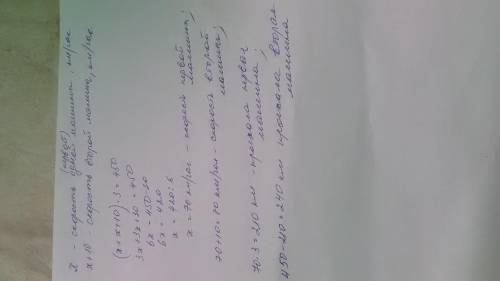 (первой)
x - скорость одной машины, км/час
x+10 - скорость второй машины, км/час
(x+x+10)·3=450
3x+3x+30=450
6x=450-30
6x=420
x=420:6
x=70 км/час - скорость первой машины;
70+10=80 км/час - скорость второй машины;
70·3=210 км - проехала первая машина;
450-210=240 км проехала вторая машина